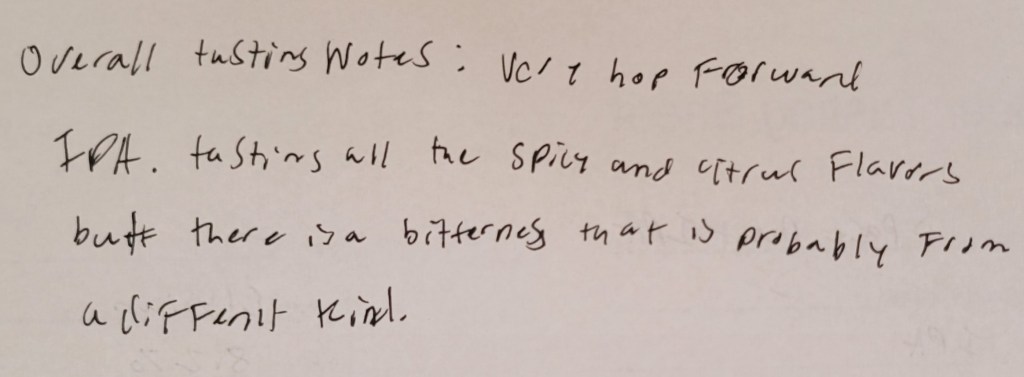 Overall tasting Notes: Very hop Forward
IPA. tasting all the spicy and citrus Flavors
but there is a bitterness that is probably From
a different kind.